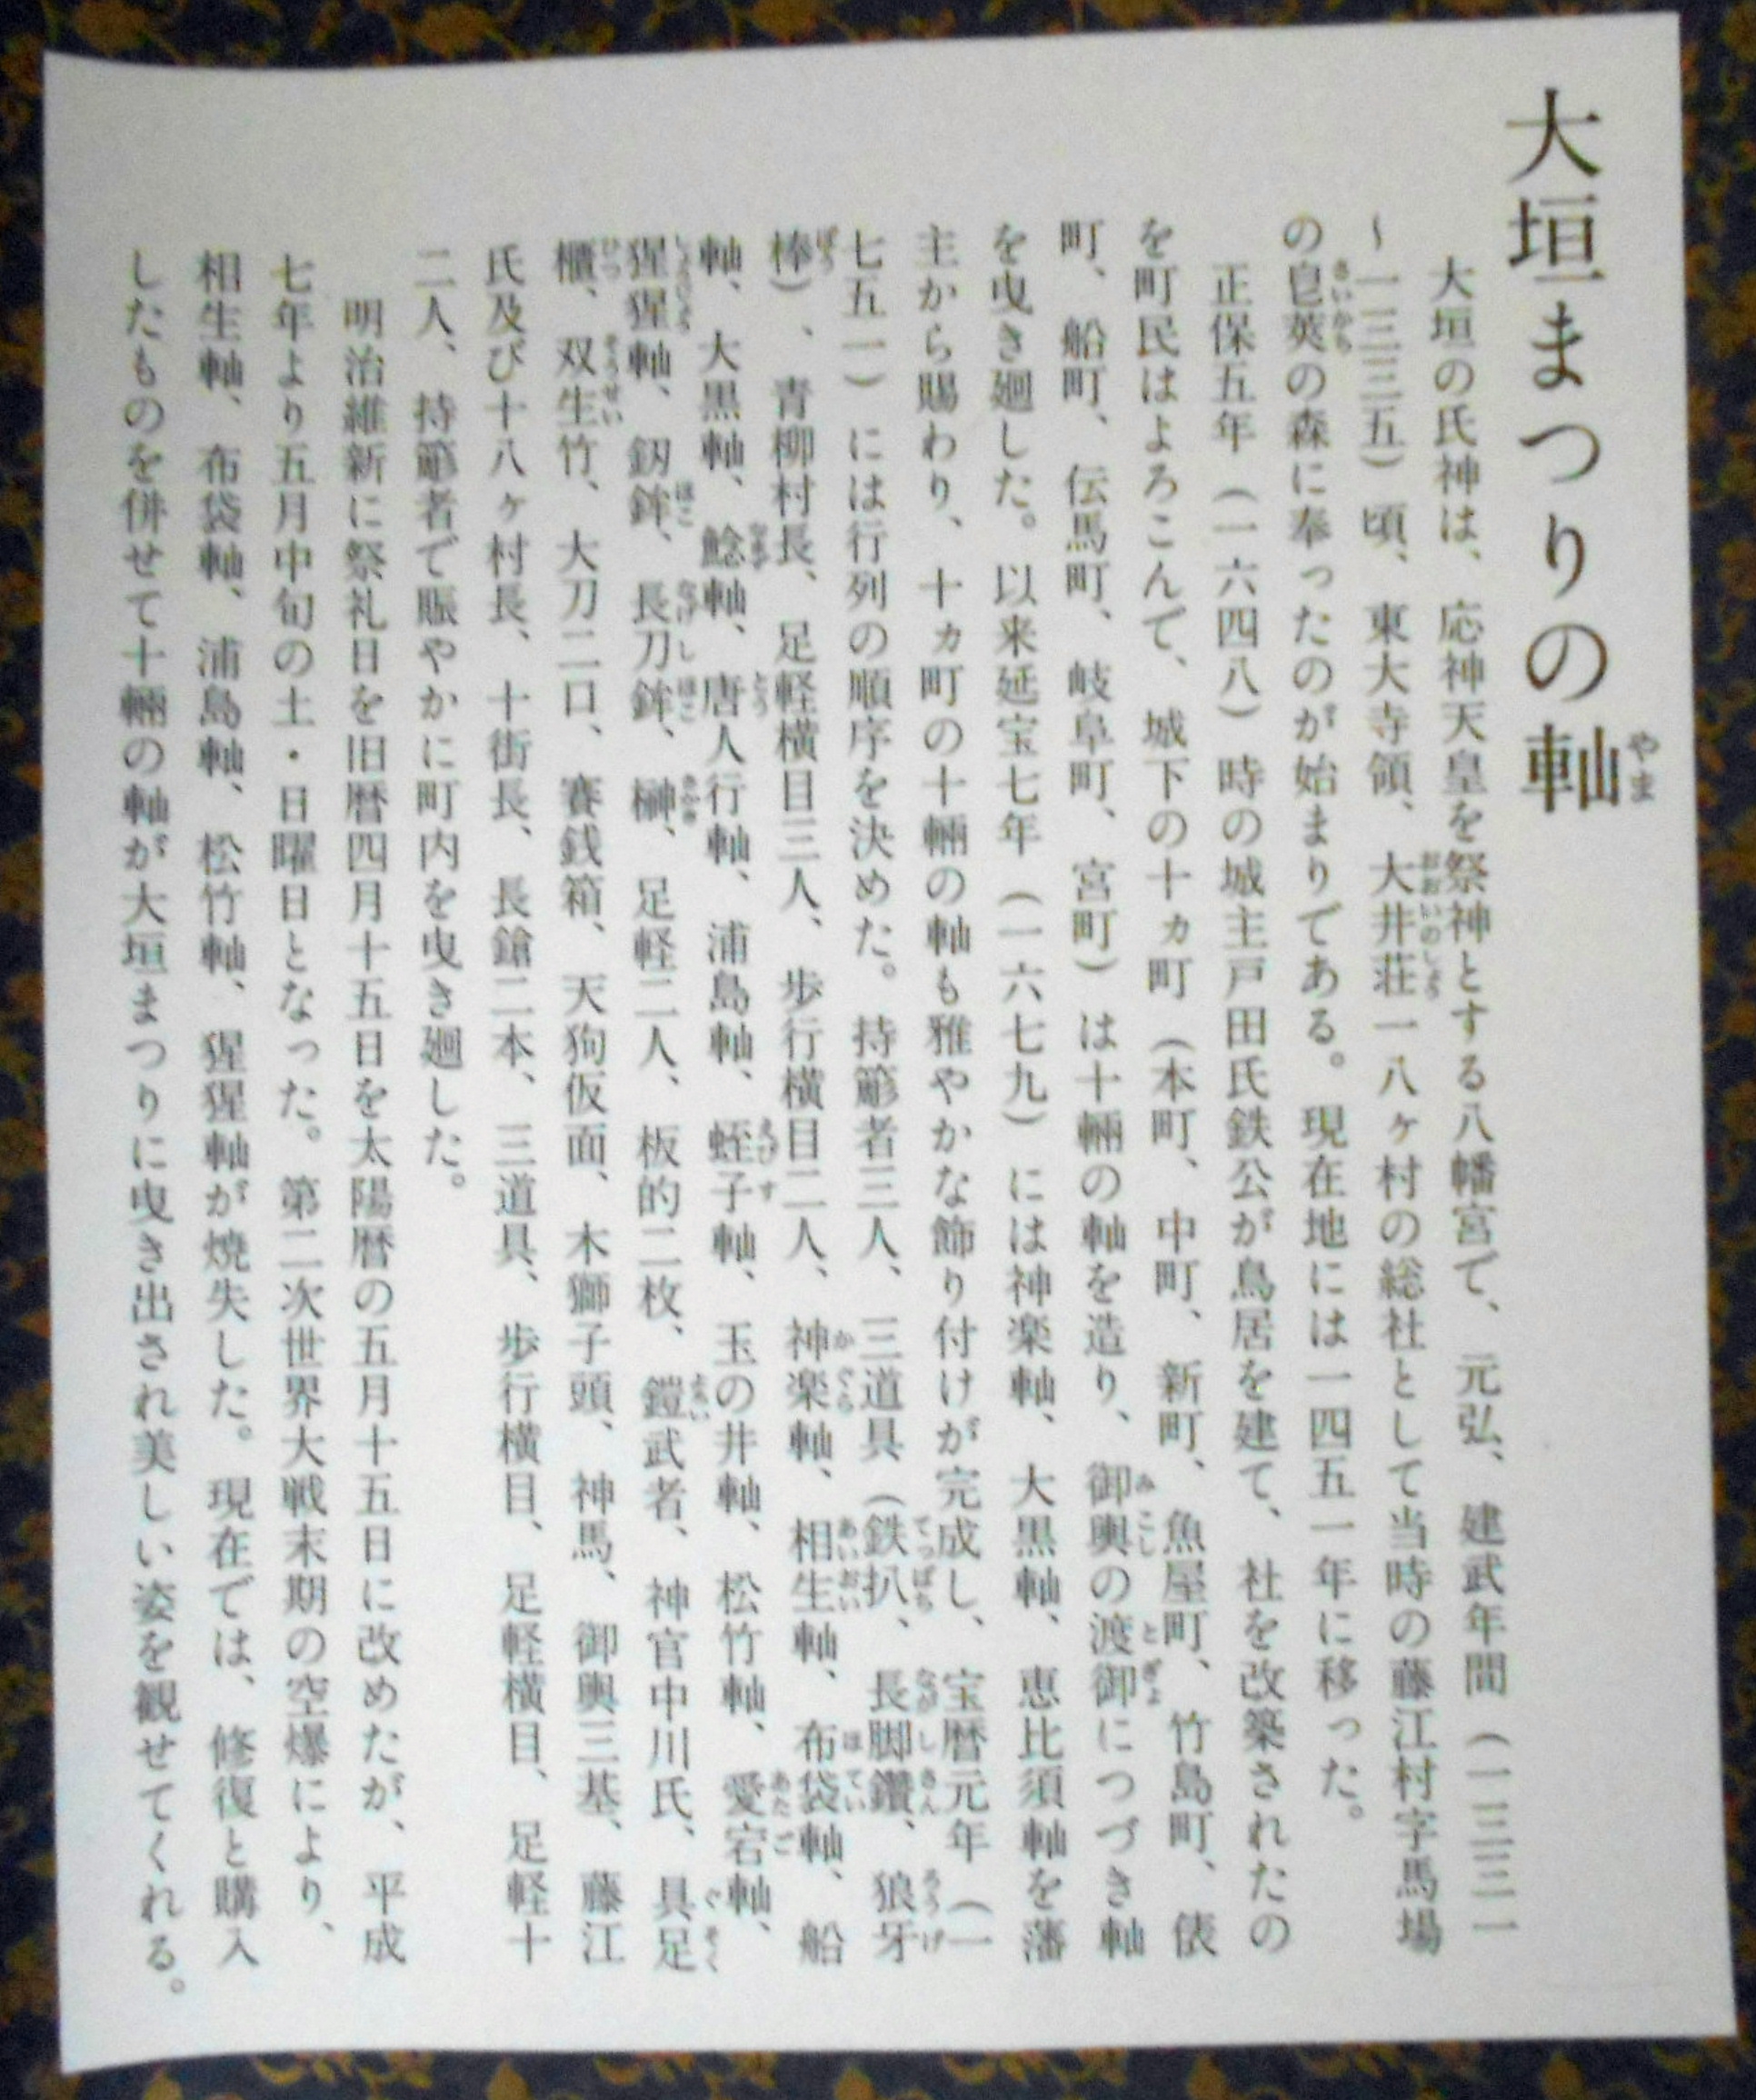 大垣まつりの軕
大垣の氏神は、応神天皇を祭神とする八幡宮で、元弘、建武年間（一三三一
～一三三五）頃、東大寺領、大井荘一八ヶ村の総社として当時の藤江村字馬場
の皀莢の森に奉ったのが始まりである。現在地には一四五一年に移った。
正保五年（一六四八）時の城主戸田氏鉄公が鳥居を建て、社を改築されたの
を町民はよろこんで、城下の十ヵ町（本町、中町、新町、魚屋町、竹島町、俵
町、船町、伝馬町、岐阜町、宮町）は十輛の軕を造り、御輿の渡御につづき軕
を曳き廻した。以来延宝七年（一六七九）には神楽軕、大黒軕、恵比須軕を藩
主から賜わり、十ヵ町の十輛の軕も雅やかな飾り付けが完成し、宝暦元年（一
七五一）には行列の順序を決めた。持籂者三人、三道具（鉄扒、長脚鑽、狼牙
棒）、青柳村長、足軽横目三人、歩行横目二人、神楽軕、相生軕、布袋軕、船
軕、大黒軕、鯰軕、唐人行軕、浦島軕、蛭子軕、玉の井軕、松竹軕、愛宕軕、
猩猩軕、釼鉾、長刀鉾、榊、足軽二人、板的二枚、鎧武者、神官中川氏、具足
櫃、双生竹、大刀二口、賽銭箱、天狗仮面、木獅子頭、神馬、御輿三基、藤江
氏及び十八ヶ村長、十街長、長鎗二本、三道具、歩行横目、足軽横目、足軽十
二人、持籂者で賑やかに町内を曳き廻した。
明治維新に祭礼日を旧暦四月十五日を太陽暦の五月十五日に改めたが、平成
七年より五月中旬の土・日曜日となった。第二次世界大戦末期の空爆により、
相生軕、布袋軕、浦島軕、松竹軕、猩猩軕が焼失した。現在では、修復と購入
したものを併せて十輛の軕が大垣まつりに曳き出され美しい姿を観せてくれる。